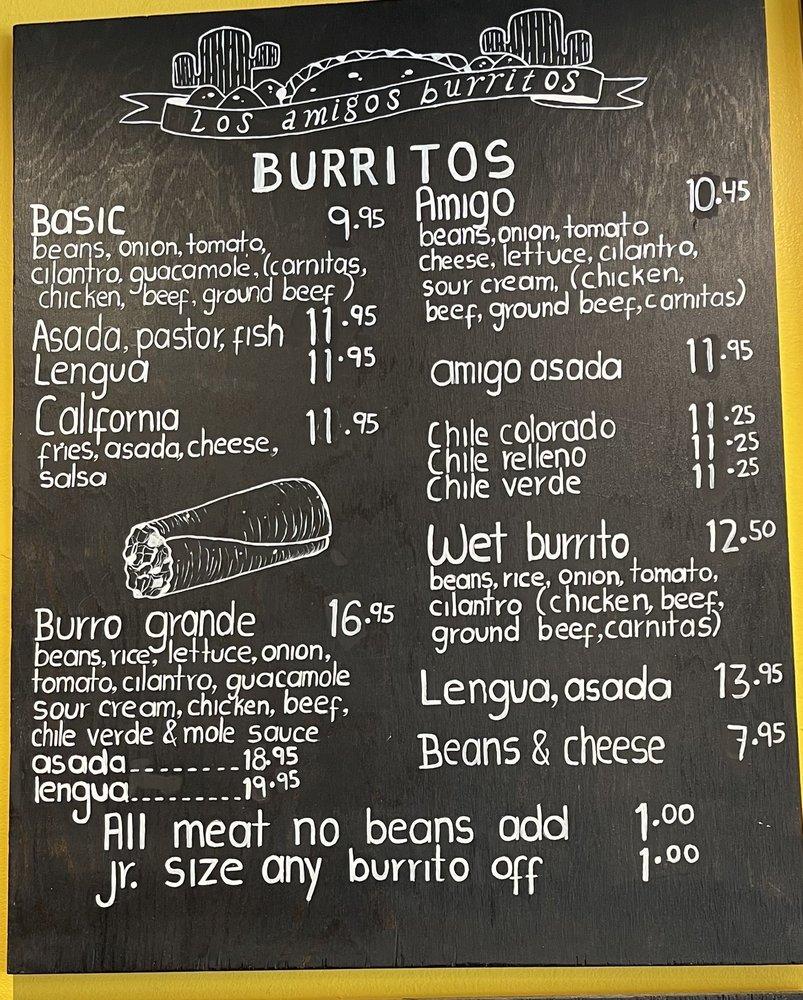 Los amigos burritos
BURRITOS
Basic 9.95
beans, onion, tomato,
cilantro, guacamole, (carnitas,
chicken, beef, ground beef)
Asada, pastor, fish 11.95
Lengua 11.95
California 11.95
fries, asada, cheese,
salsa
Burro grande 16.95
beans, rice, lettuce, onion,
tomato, cilantro, guacamole
sour cream, chicken, beef,
chile verde & mole sauce
asada.........18.95
lengua.........19.95
Amigo 10.45
beans, onion, tomato
cheese, lettuce, cilantro,
sour cream, (chicken,
beef, ground beef, carnitas)
amigo asada 11.95
Chile colorado 11.25
Chile relleno 11.25
Chile verde 11.25
Wet burrito 12.50
beans, rice, onion, tomato,
cilantro (chicken, beef,
ground beef, carnitas)
Lengua, asada 13.95
Beans & cheese 7.95
All meat no beans add 1.00
jr. size any burrito off 1.00